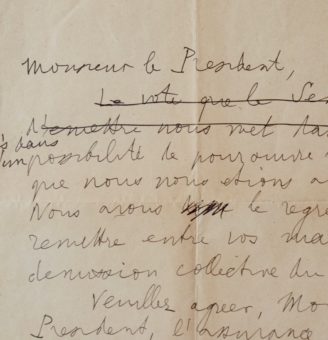 Monsieur le President,
Le vote que le Se
nous met da
dans
possibilité de poursuivre
que nous nous etions a
Nous avons le regre
remettre entre vos ma
demission collective du
Veuillez agreer, Mo
President, l'assurance